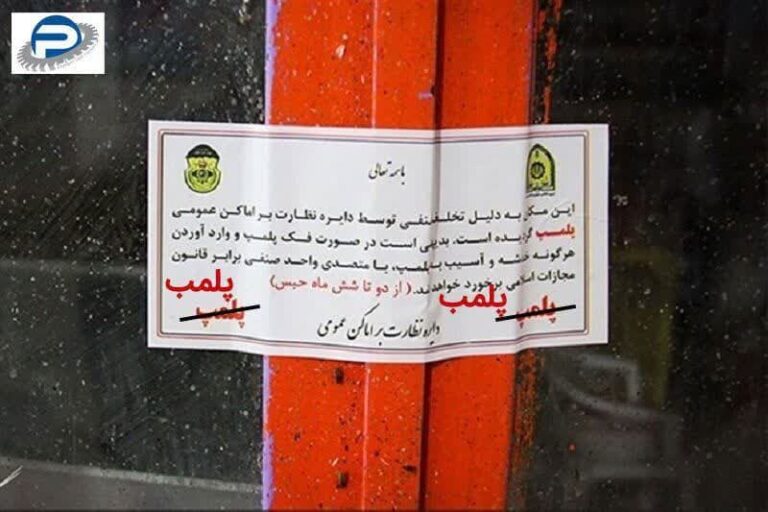 P
باسمه تعالی
این مکان به دلیل تخلف صنفی توسط دایره نظارت بر اماکن عمومی
پلمپ گردیده است، بدیهی است در صورت فک پلمپ و وارد آوردن
هرگونه خدشه و آسیب به پلمپ، با متصدی واحد صنفی برابر قانون
مجازات اسلامی برخورد خواهد شد. (از دو تا شش ماه حبس)
پلمب پلمب
پلمپ پلمپ
دایره نظارت بر اماکن عمومی